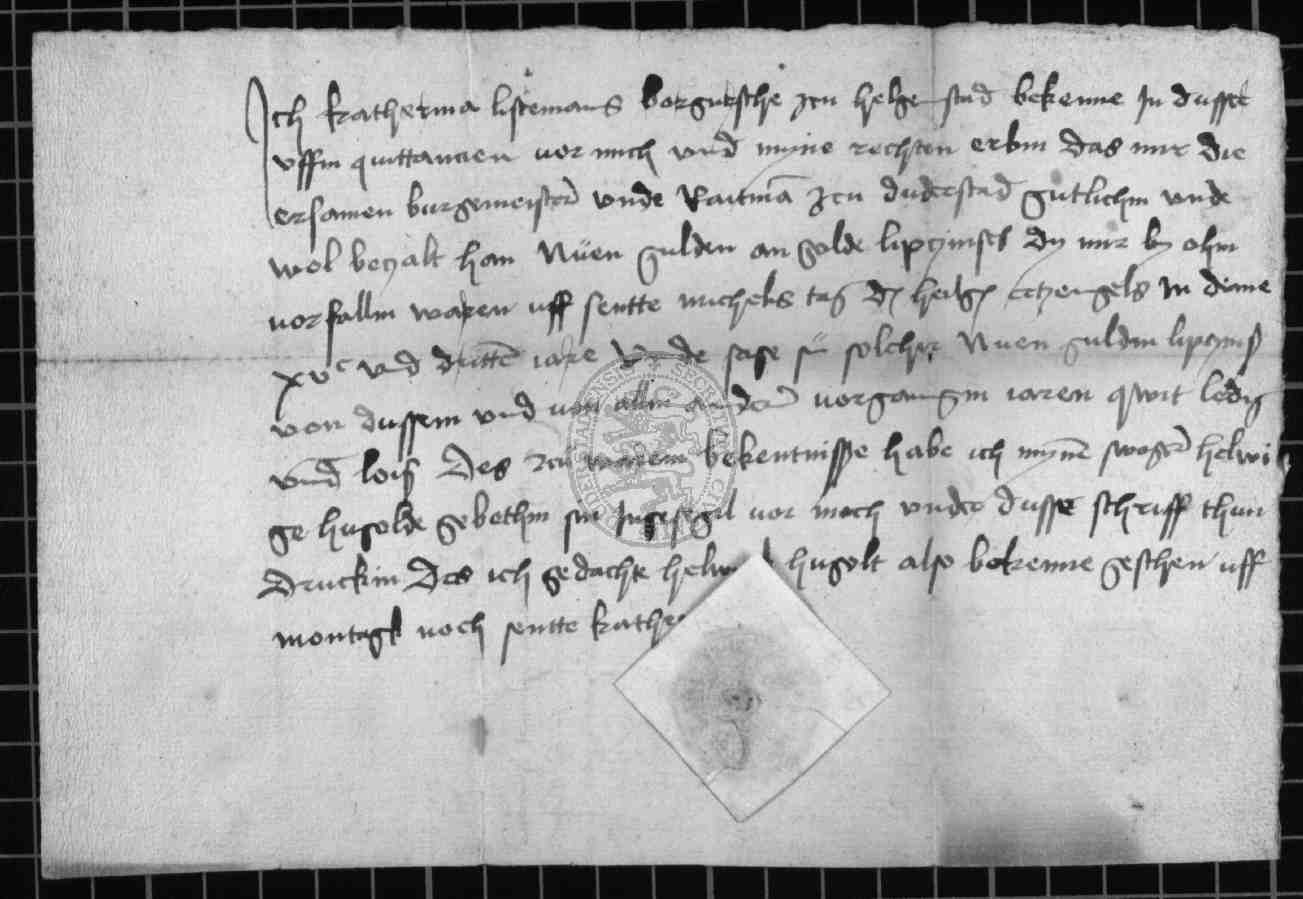 Ich Katherina listemans borgersche zcu helgenstad bekenne In dusser
uffin quittancien vor mich und myne rechten erbin das mir die
ersamen burgemeister unde Raitman zcu duderstad gutlichin unde
wol beczalt han Nuen gulden an golde lipczinses dy mir by ohm
vorfallin waren uff sentte michels tag des heilgen ertzengels In deme
xvc und dritten iare unde sage sie solcher Nuen guldin lipczinß
von dussem und von allin anderen vorgangin iaren qwit ledig
und loiß Des zcu warem bekentnisse habe ich mynen swoger helwi
ge hugolde gebethin sin Ingesegil vor mich under dusse schriff thun
drucken Des ich gedachte hugolt also bekenne geschen uff
montagk noch sentte
SECRETUM